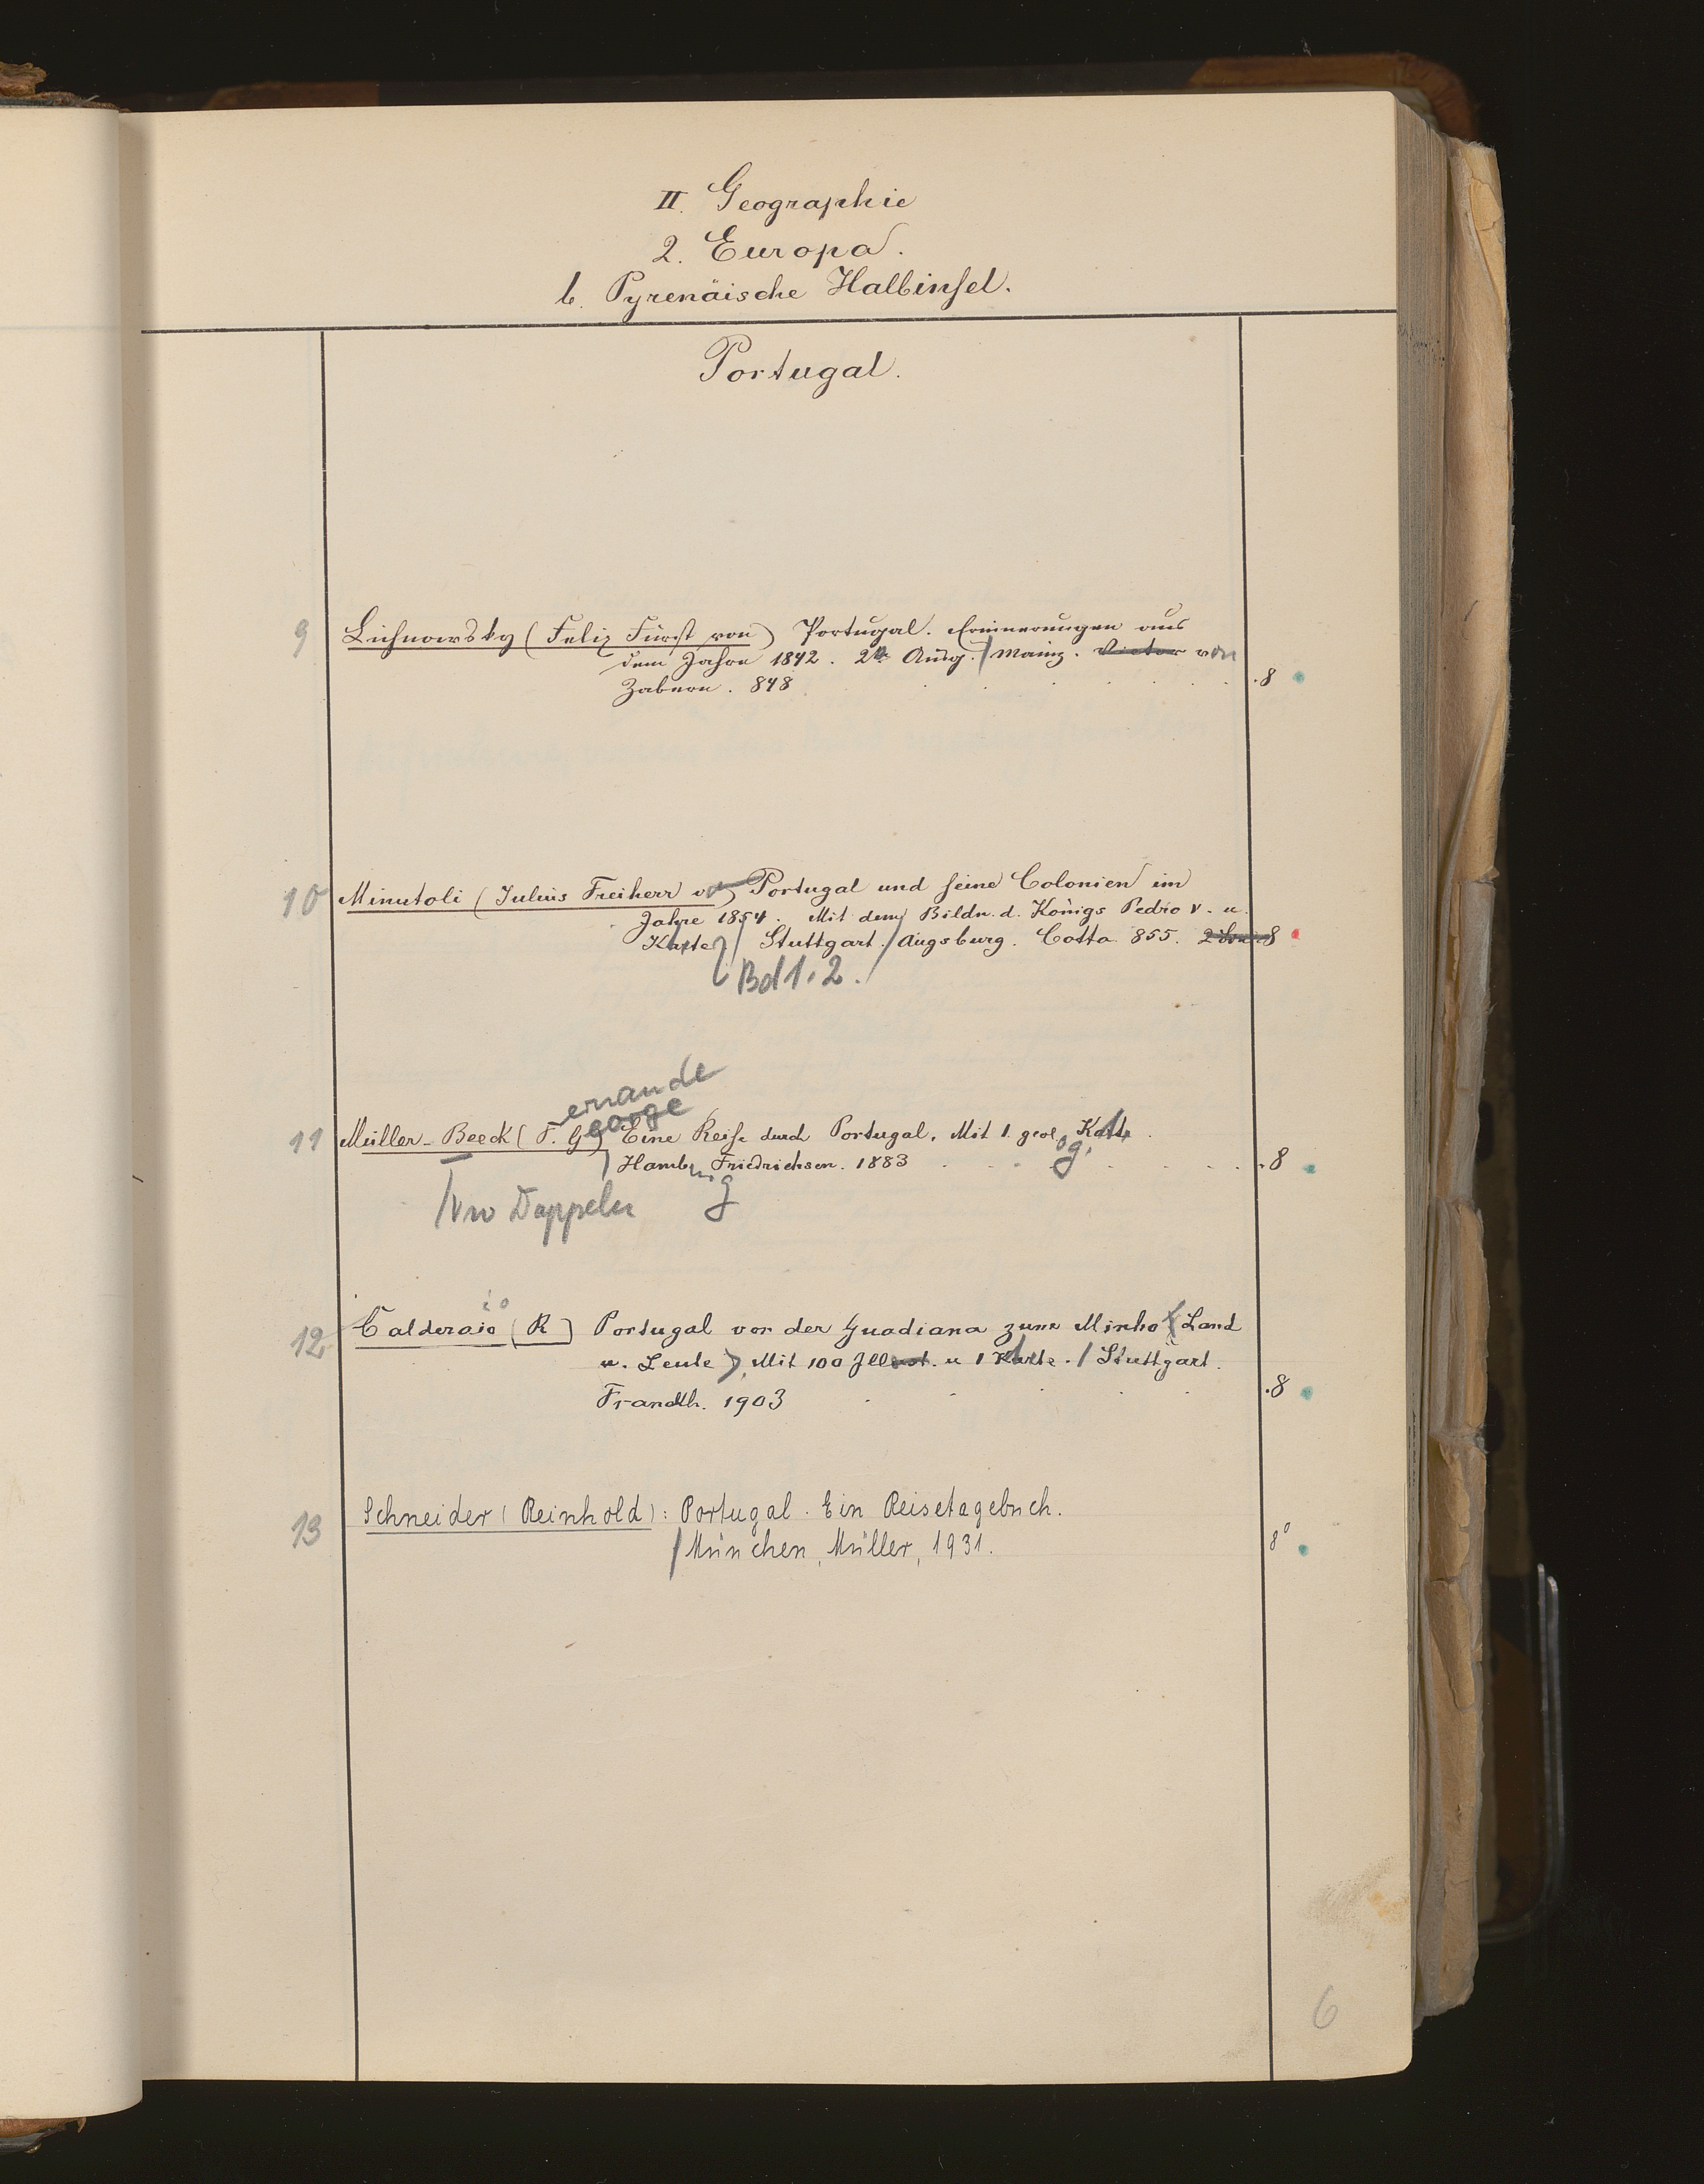 II. Geographie
2. Europa.
b. Pyrenäische Halbinsel.
Portugal.
9 Lichnowsky (Felix Fürst von) Portugal. Erinnerungen aus
dem Jahre 1842. 2te Ausg. / Mainz. Victor von
Zabern. 848 .8
10 Minutoli (Julius Freiherr v) Portugal und seine Colonien im
Jahre 1854. Mit dem Bildn. d. Königs Pedro V. u.
Karte / Stuttgart. / Augsburg. Cotta 855. 8
Bd 1. 2.
ernande
eorge
11 Müller-Beeck (F. G) Eine Reise durch Portugal. Mit 1. geolog. Karte.
/ Hamburg Friedrichsen. 1883 .8
Doppeler
io
12 Calderaio (R) Portugal von der Guadiana zum Minho (Land
u. Leute). Mit 100 Illust. u 1 Karte. / Stuttgart.
Franckh. 1903 .8
13 Schneider (Reinhold): Portugal. Ein Reisetagebuch.
/ München, Müller, 1931. 8°
6